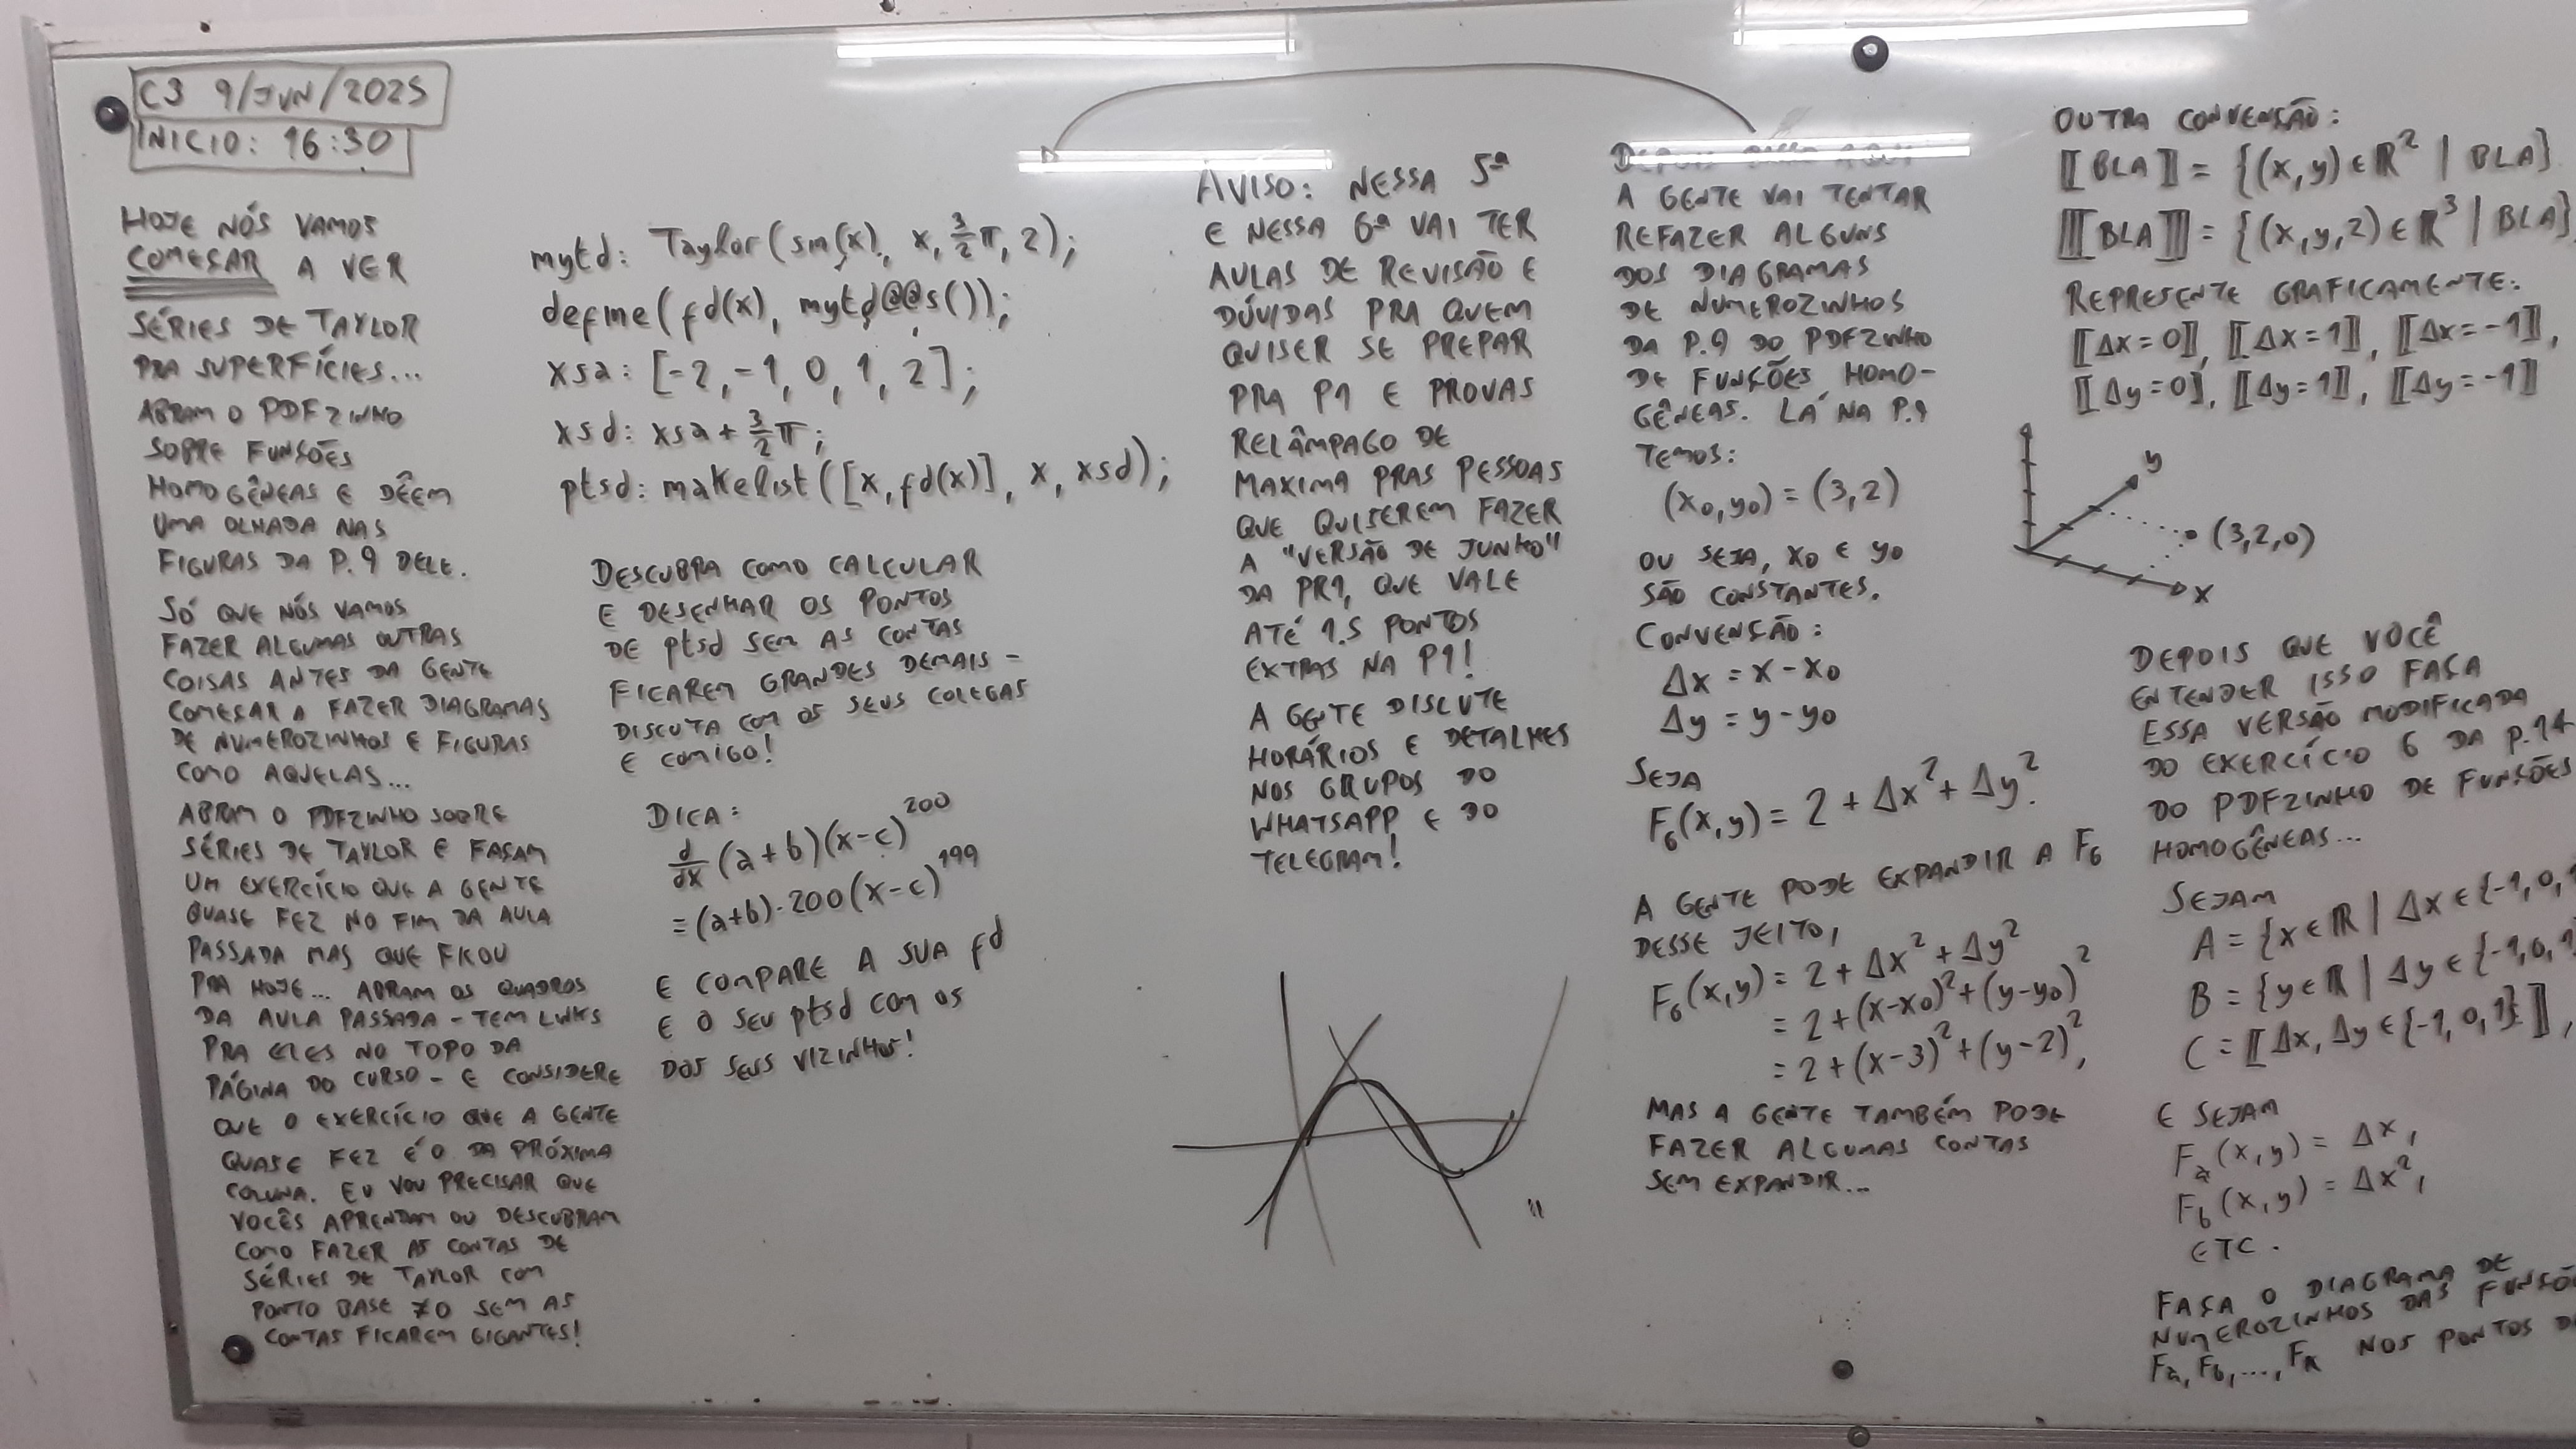 C3 9/JUN/2025
INICIO: 16:30
HOJE NÓS VAMOS
COMEÇAR A VER
SÉRIES DE TAYLOR
PRA SUPERFÍCIES...
ABRAM O PDFZINHO
SOBRE FUNÇÕES
HOMOGÊNEAS E DÊEM
UMA OLHADA NAS
FIGURAS DA P.9 DELE.
SÓ QUE NÓS VAMOS
FAZER ALGUMAS OUTRAS
COISAS ANTES DA GENTE
COMEÇAR A FAZER DIAGRAMAS
DE NUMEROZINHOS E FIGURAS
COMO AQUELAS...
ABRAM O PDFZINHO SOBRE
SÉRIES DE TAYLOR E FAÇAM
UM EXERCÍCIO QUE A GENTE
QUASE FEZ NO FIM DA AULA
PASSADA MAS QUE FICOU
PRA HOJE... ABRAM OS QUADROS
DA AULA PASSADA - TEM LINKS
PRA ELES NO TOPO DA
PÁGINA DO CURSO - E CONSIDERE
QUE O EXERCÍCIO QUE A GENTE
QUASE FEZ É O DA PRÓXIMA
COLUNA. EU VOU PRECISAR QUE
VOCÊS APRENDAM OU DESCUBRAM
COMO FAZER AS CONTAS DE
SÉRIES DE TAYLOR COM
PONTO BASE ≠0 SEM AS
CONTAS FICAREM GIGANTES!
mytd: Taylor(sin(x), x, 3/2 π, 2);
define(fd(x), mytd@@s());
xsa: [-2,-1,0,1,2];
xsd: xsa + 3/2 π;
ptsd: makelist([x,fd(x)], x, xsd);
DESCUBRA COMO CALCULAR
E DESENHAR OS PONTOS
DE ptsd SEM AS CONTAS
FICAREM GRANDES DEMAIS -
DISCUTA COM OS SEUS COLEGAS
E COMIGO!
DICA:
d/dx (a+b)(x-c)^200
= (a+b)·200(x-c)^199
E COMPARE A SUA fd
E O SEU ptsd COM OS
DOS SEUS VIZINHOS!
AVISO: NESSA 5ª
E NESSA 6ª VAI TER
AULAS DE REVISÃO E
DÚVIDAS PRA QUEM
QUISER SE PREPAR
PRA P1 E PROVAS
RELÂMPAGO DE
MAXIMA PRAS PESSOAS
QUE QUISEREM FAZER
A "VERSÃO DE JUNHO"
DA PR1, QUE VALE
ATÉ 1.5 PONTOS
EXTRAS NA P1!
A GENTE DISCUTE
HORÁRIOS E DETALHES
NOS GRUPOS DO
WHATSAPP E DO
TELEGRAM!
DEPOIS
A GENTE VAI TENTAR
REFAZER ALGUNS
DOS DIAGRAMAS
DE NUMEROZINHOS
DA P.9 DO PDFZINHO
DE FUNÇÕES HOMO-
GÊNEAS. LÁ NA P.9
TEMOS:
(x₀,y₀) = (3,2)
OU SEJA, x₀ E y₀
SÃO CONSTANTES.
CONVENÇÃO:
Δx = x - x₀
Δy = y - y₀
SEJA
F₆(x,y) = 2 + Δx² + Δy².
A GENTE PODE EXPANDIR A F₆
DESSE JEITO,
F₆(x,y) = 2 + Δx² + Δy²
= 2 + (x-x₀)² + (y-y₀)²
= 2 + (x-3)² + (y-2)²,
MAS A GENTE TAMBÉM PODE
FAZER ALGUMAS CONTAS
SEM EXPANDIR...
OUTRA CONVENÇÃO:
⟦BLA⟧ = {(x,y) ∈ ℝ² | BLA}
⟦⟦BLA⟧⟧ = {(x,y,z) ∈ ℝ³ | BLA}
REPRESENTE GRAFICAMENTE:
⟦Δx=0⟧, ⟦Δx=1⟧, ⟦Δx=-1⟧,
⟦Δy=0⟧, ⟦Δy=1⟧, ⟦Δy=-1⟧
y
(3,2,0)
x
DEPOIS QUE VOCÊ
ENTENDER ISSO FAÇA
ESSA VERSÃO MODIFICADA
DO EXERCÍCIO 6 DA P.14
DO PDFZINHO DE FUNÇÕES
HOMOGÊNEAS...
SEJAM
A = {x∈ℝ | Δx ∈ {-1,0,1
B = {y∈ℝ | Δy ∈ {-1,0,1
C = ⟦Δx,Δy ∈ {-1,0,1}⟧,
E SEJAM
Fa(x,y) = Δx,
Fb(x,y) = Δx²,
ETC.
FAÇA O DIAGRAMA DE
NUMEROZINHOS DAS FUNÇÕ
Fa, Fb, ..., Fk NOS PONTOS D